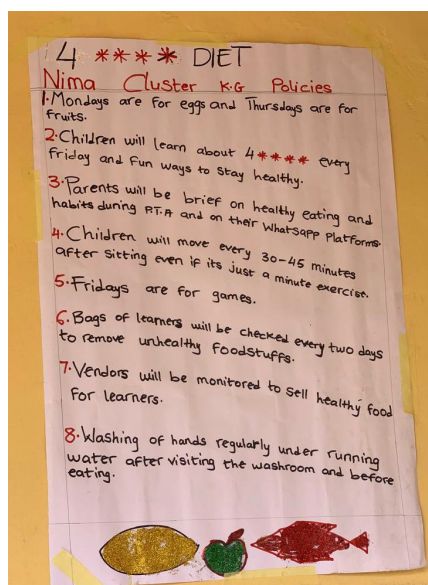 4 **** DIET
Nima Cluster K.G Policies
1. Mondays are for eggs and Thursdays are for
fruits.
2. Children will learn about 4 **** every
friday and fun ways to stay healthy.
3. Parents will be brief on healthy eating and
habits during P.T.A and on their Whatsapp Platforms.
4. Children will move every 30-45 minutes
after sitting even if its just a minute exercise.
5. Fridays are for games.
6. Bags of learners will be checked every two days
to remove unhealthy foodstuffs.
7. Vendors will be monitored to sell healthy food
for learners.
8. Washing of hands regularly under running
water after visiting the washroom and before
eating.